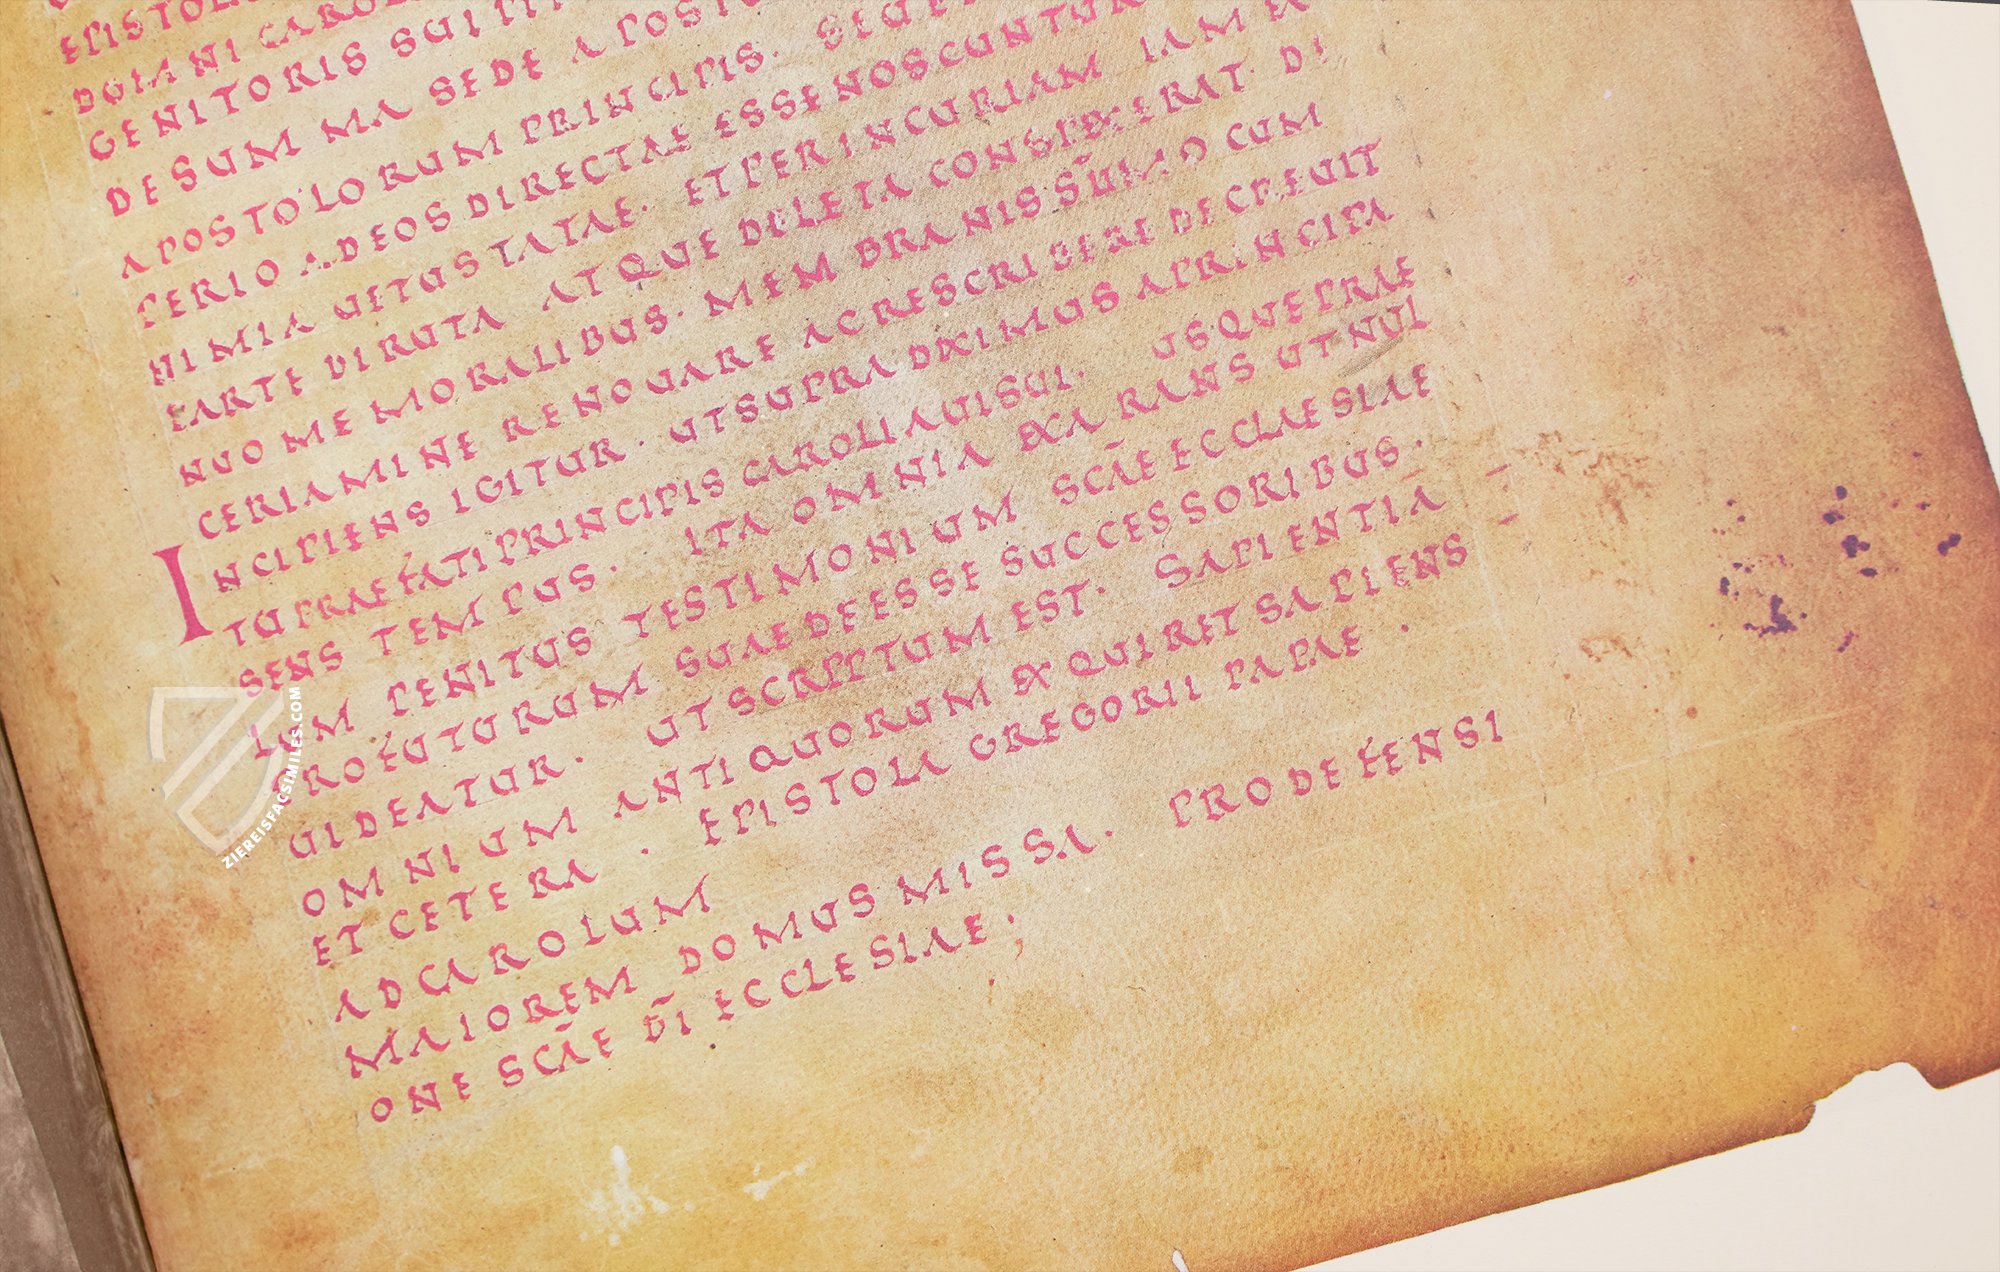 GENITORIS SUI
DE SUMMA SEDE APOSTO
APOSTOLORUM PRINCIPIS. SEU
PERIO AD EOS DIRECTAE ESSE NOSCUNTUR
NIMIA UETUSTATAE. ET PER INCURIAM IAM EX
PARTE DIRUTA ATQUE DELETA CONSPEXERAT. DI
NUO MEMORALIBUS. MEMBRANIS SUMMO CUM
CERTAMINE RENOUARE AC RESCRIBERE DECREUIT
INCIPIENS IGITUR. UT SUPRA DIXIMUS A PRINCIPA
TU PRAEFATI PRINCIPIS CAROLI AUI SUI. USQUE PRAE
SENS TEMPUS. ITA OMNIA EXARANS UT NUL
LUM PENITUS TESTIMONIUM SCĀE ECCLAESIAE
PROFUTURUM SUAE DEESSE SUCCESSORIBUS.
UIDEATUR. UT SCRIPTUM EST. SAPIENTIA
OMNIUM ANTIQUORUM EXQUIRET SAPIENS
ET CETERA. EPISTOLA GREGORII PAPAE.
AD CAROLUM
MAIOREM DOMUS MISSA. PRO DEFENSI
ONE SCĀE DĪ ECCLESIAE;
ZIEREISFACSIMILES.COM